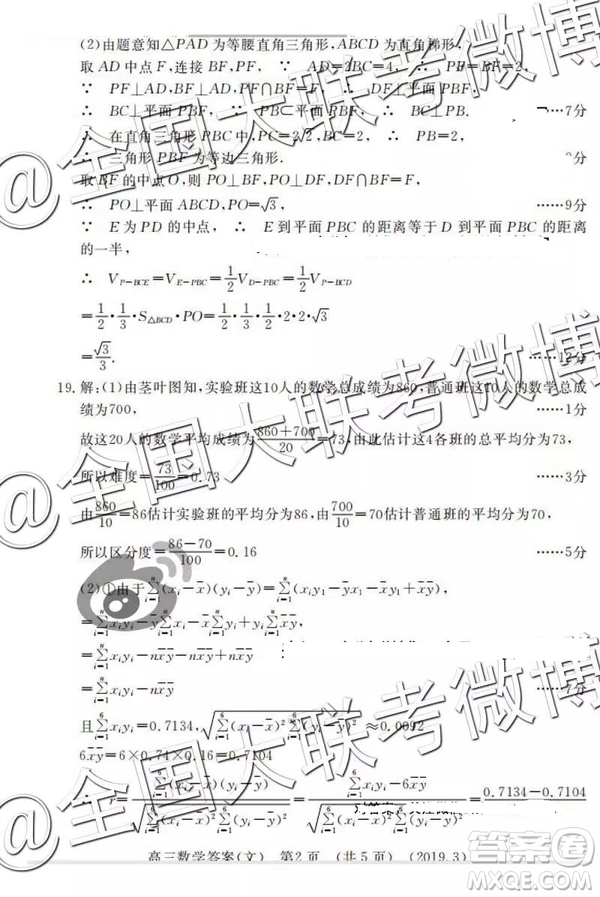 (2)由题意知△PAD为等腰直角三角形,ABCD为直角梯形,
取AD中点F,连接BF,PF. ∵ AD=2BC=4, ∴ PF=BF=2,
∵ PF⊥AD,BF⊥AD,PF∩BF=F, ∴ AD⊥平面PBF,
∴ BC⊥平面PBF, ∵ PB⊂平面PBF, ∴ BC⊥PB. ……7分
∴ 在直角三角形PBC中,PC=2√2,BC=2, ∴ PB=2,
∴ 三角形PBF为等边三角形. 8分
取BF的中点O,则PO⊥BF,PO⊥DF,DF∩BF=F,
∴ PO⊥平面ABCD,PO=√3, ……9分
∵ E为PD的中点, ∴ E到平面PBC的距离等于D到平面PBC的距离
的一半,
∴ V_{P-BCE}=V_{E-PBC}=1/2V_{D-PBC}=1/2V_{P-BCD}
=1/2·1/3·S_{△BCD}·PO=1/2·1/3·1/2·2·2·√3
=√3/3. ……12分
19.解:(1)由茎叶图知,实验班这10人的数学总成绩为860,普通班这10人的数学总成
绩为700, ……1分
故这20人的数学平均成绩为(860+700)/20=73,由此估计这4各班的总平均分为73,
所以难度=73/100=0.73 ……3分
由860/10=86估计实验班的平均分为86,由700/10=70估计普通班的平均分为70,
所以区分度=(86-70)/100=0.16 ……5分
(2)①由于∑_{i=1}^{n}(x_i-x̄)(y_i-ȳ)=∑_{i=1}^{n}(x_iy_i-x̄y_i-x_iȳ+x̄ȳ),
=∑_{i=1}^{n}x_iy_i-x̄∑_{i=1}^{n}y_i-ȳ∑_{i=1}^{n}x_i+nx̄ȳ
=∑_{i=1}^{n}x_iy_i-nx̄ȳ-nx̄ȳ+nx̄ȳ
=∑_{i=1}^{n}x_iy_i-nx̄ȳ ……7分
且∑_{i=1}^{6}x_iy_i=0.7134,√(∑_{i=1}^{6}(x_i-x̄)²∑_{i=1}^{6}(y_i-ȳ)²)≈0.0092
6x̄ȳ=6×0.74×0.16=0.7104
∴ r=∑_{i=1}^{6}(x_i-x̄)(y_i-ȳ)/√(∑_{i=1}^{6}(x_i-x̄)²∑_{i=1}^{6}(y_i-ȳ)²)=(∑_{i=1}^{6}x_iy_i-6x̄ȳ)/√(∑_{i=1}^{6}(x_i-x̄)²∑_{i=1}^{6}(y_i-ȳ)²)=(0.7134-0.7104)/
高三数学答案(文) 第2页 (共5页) (2019.3)
@全国大联考微博
@全国大联考微博
@全国大联考微博
作业答案
MXQE.COM